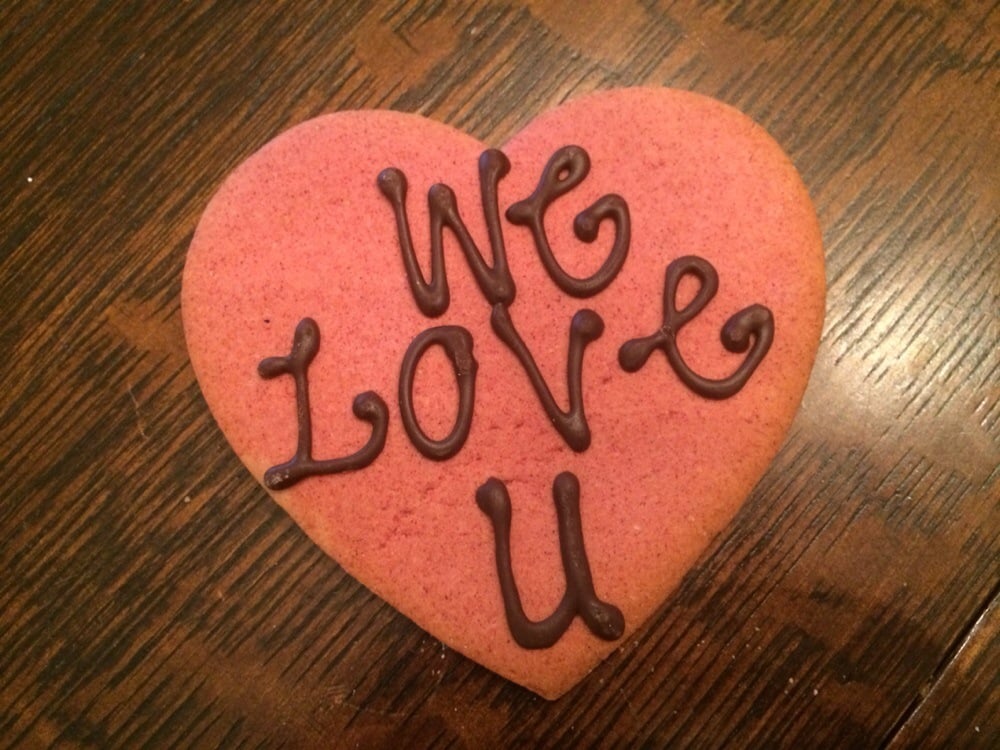 We
Love
U